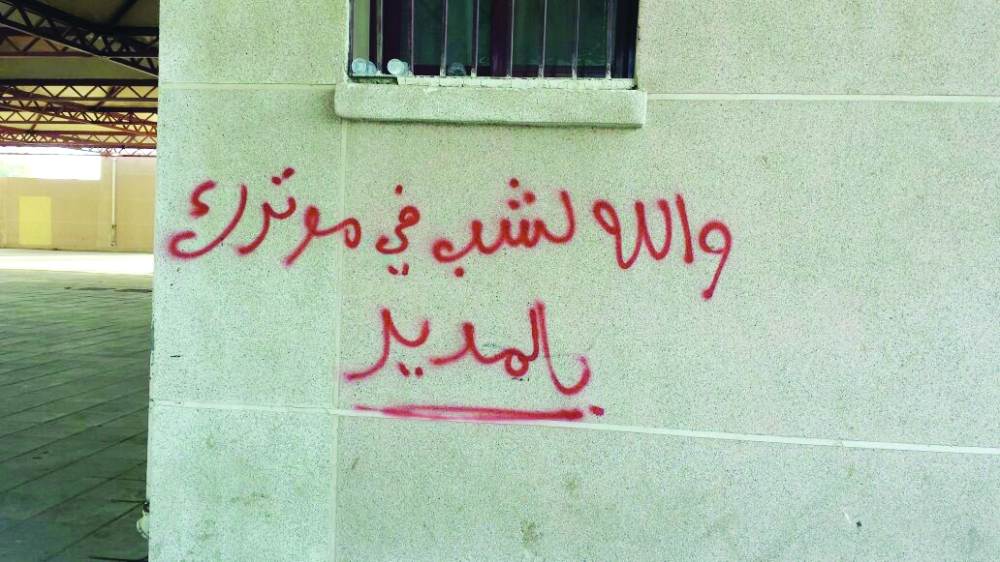 والله لشب في موترك
بالمدير